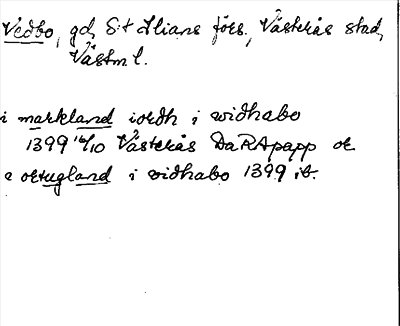 Vedbo, gd, S:t Ilians förs., Västerås stad,
Västm l.
i markland iordh i widhabo
1399 16/10 Västerås DaRApapp or
a ortugland i widhabo 1399 ib.